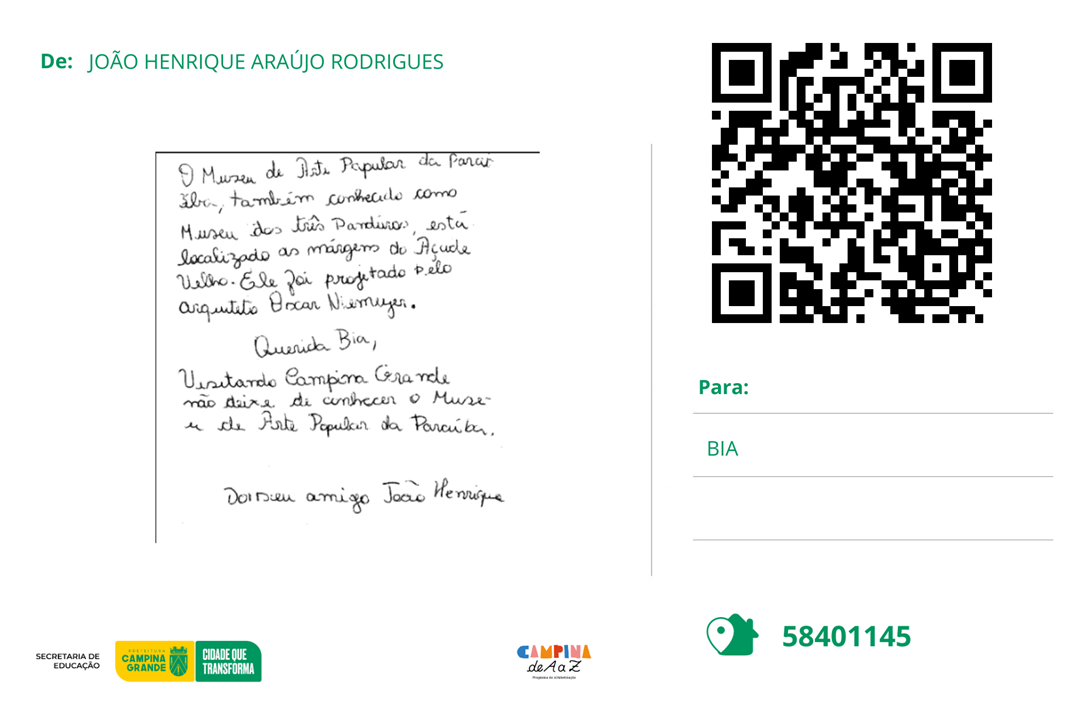 De: JOÃO HENRIQUE ARAÚJO RODRIGUES
O Museu de Arte Popular da Paraí
íba, também conhecido como
Museu dos três Pandeiros, está
localizado as márgens do Açude
Velho. Ele foi projetado pelo
arquiteto Oscar Niemuyer.
Querida Bia,
Visitando Campina Grande
não deixe de conhecer o Muse-
u de Arte Popular da Paraíba.
Do seu amigo João Henrique
Para:
BIA
58401145
SECRETARIA DE
EDUCAÇÃO
PREFEITURA
CAMPINA
GRANDE
CIDADE QUE
TRANSFORMA
CAMPINA
de A a Z
Programa de Alfabetização